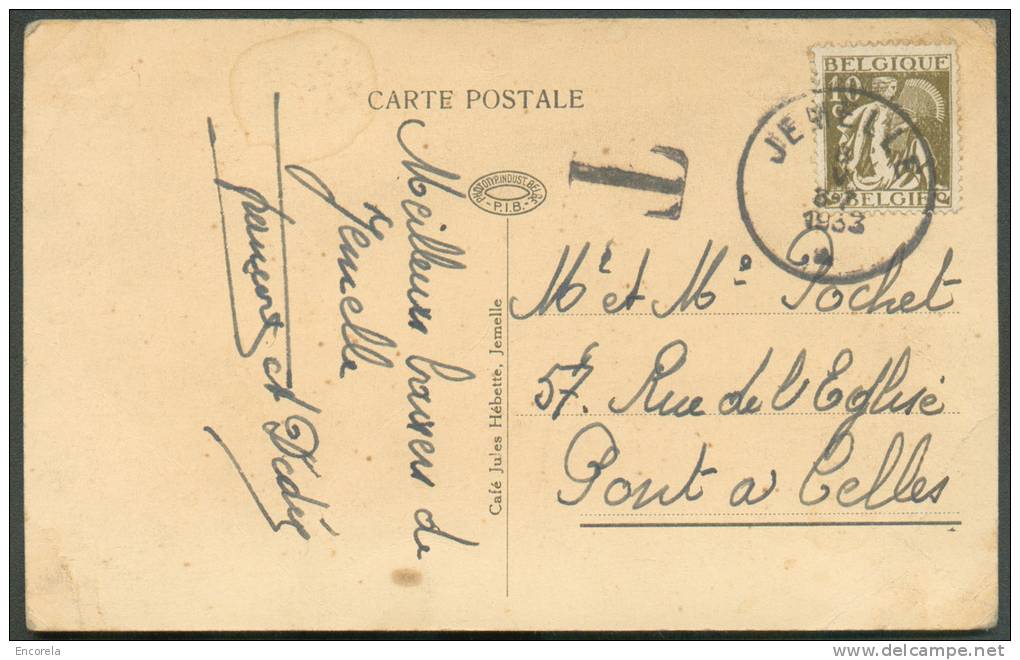 CARTE POSTALE
BELGIQUE
10
C
BELGIË
JEMELLE
1933
T
PHOTOTYP. INDUST. BELGE
- P.I.B. -
Meilleurs baisers de
Jemelle
et Dédé
Café Jules Hébette, Jemelle
Mr et Me Pochet
57. Rue de l'Eglise
Pont a Celles
Encorela
www.delcampe.net